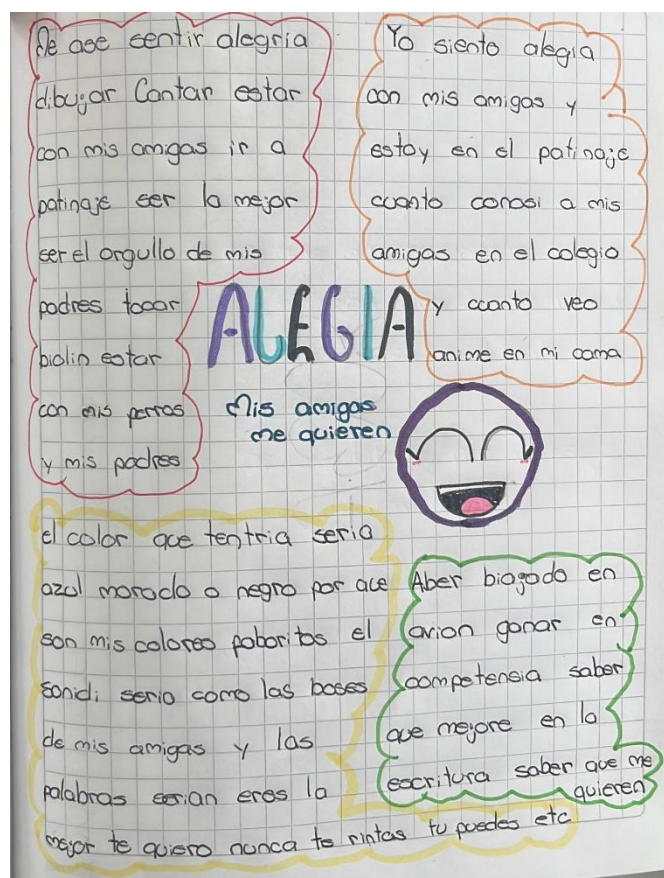 Me ase sentir alegria
dibujar Cantar estar
con mis amigas ir a
patinaje ser la mejor
ser el orgullo de mis
padres tocar
biolin estar
con mis perros
y mis padres
Yo siento alegia
con mis amigas y
estoy en el patinaje
cuanto conosi a mis
amigas en el colegio
y cuanto veo
anime en mi cama
ALEGIA
Mis amigas
me quieren
el color que tentria seria
azul morado o negro por que
son mis colores faboritos el
sonidi seria como las boses
de mis amigas y las
palabras serian eres la
mejor te quiero nunca te rintas tu puedes etc
Aber biajado en
avion ganar en
competensia saber
que mejore en la
escritura saber que me
quieren